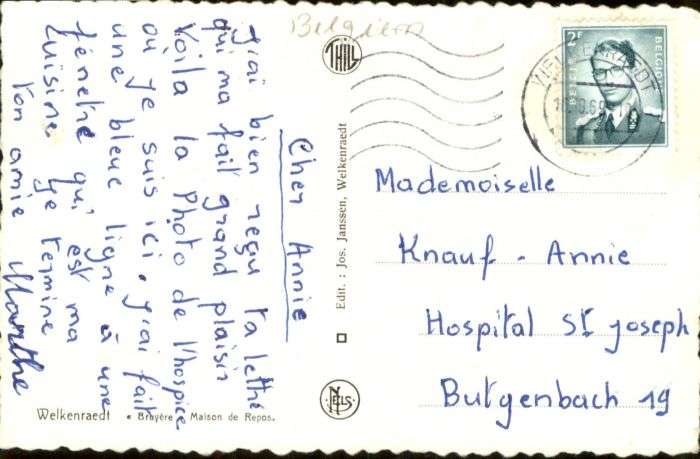 Belgien
Cher Annie
J'ai bien reçu ta lettre
qui ma fait grand plaisir
Voila la Photo de l'hospice
où je suis ici, j'ai fait
une bleue ligne à une
fénetre qui est ma
Cuisine je termine
ton amie Marthe
Welkenraedt * Bruyère Maison de Repos.
THILL
Edit. : Jos. Janssen, Welkenraedt
NELS
2F
BELGIE
BELGIQUE
Mademoiselle
Knauf - Annie
Hospital St Joseph
Butgenbach 19